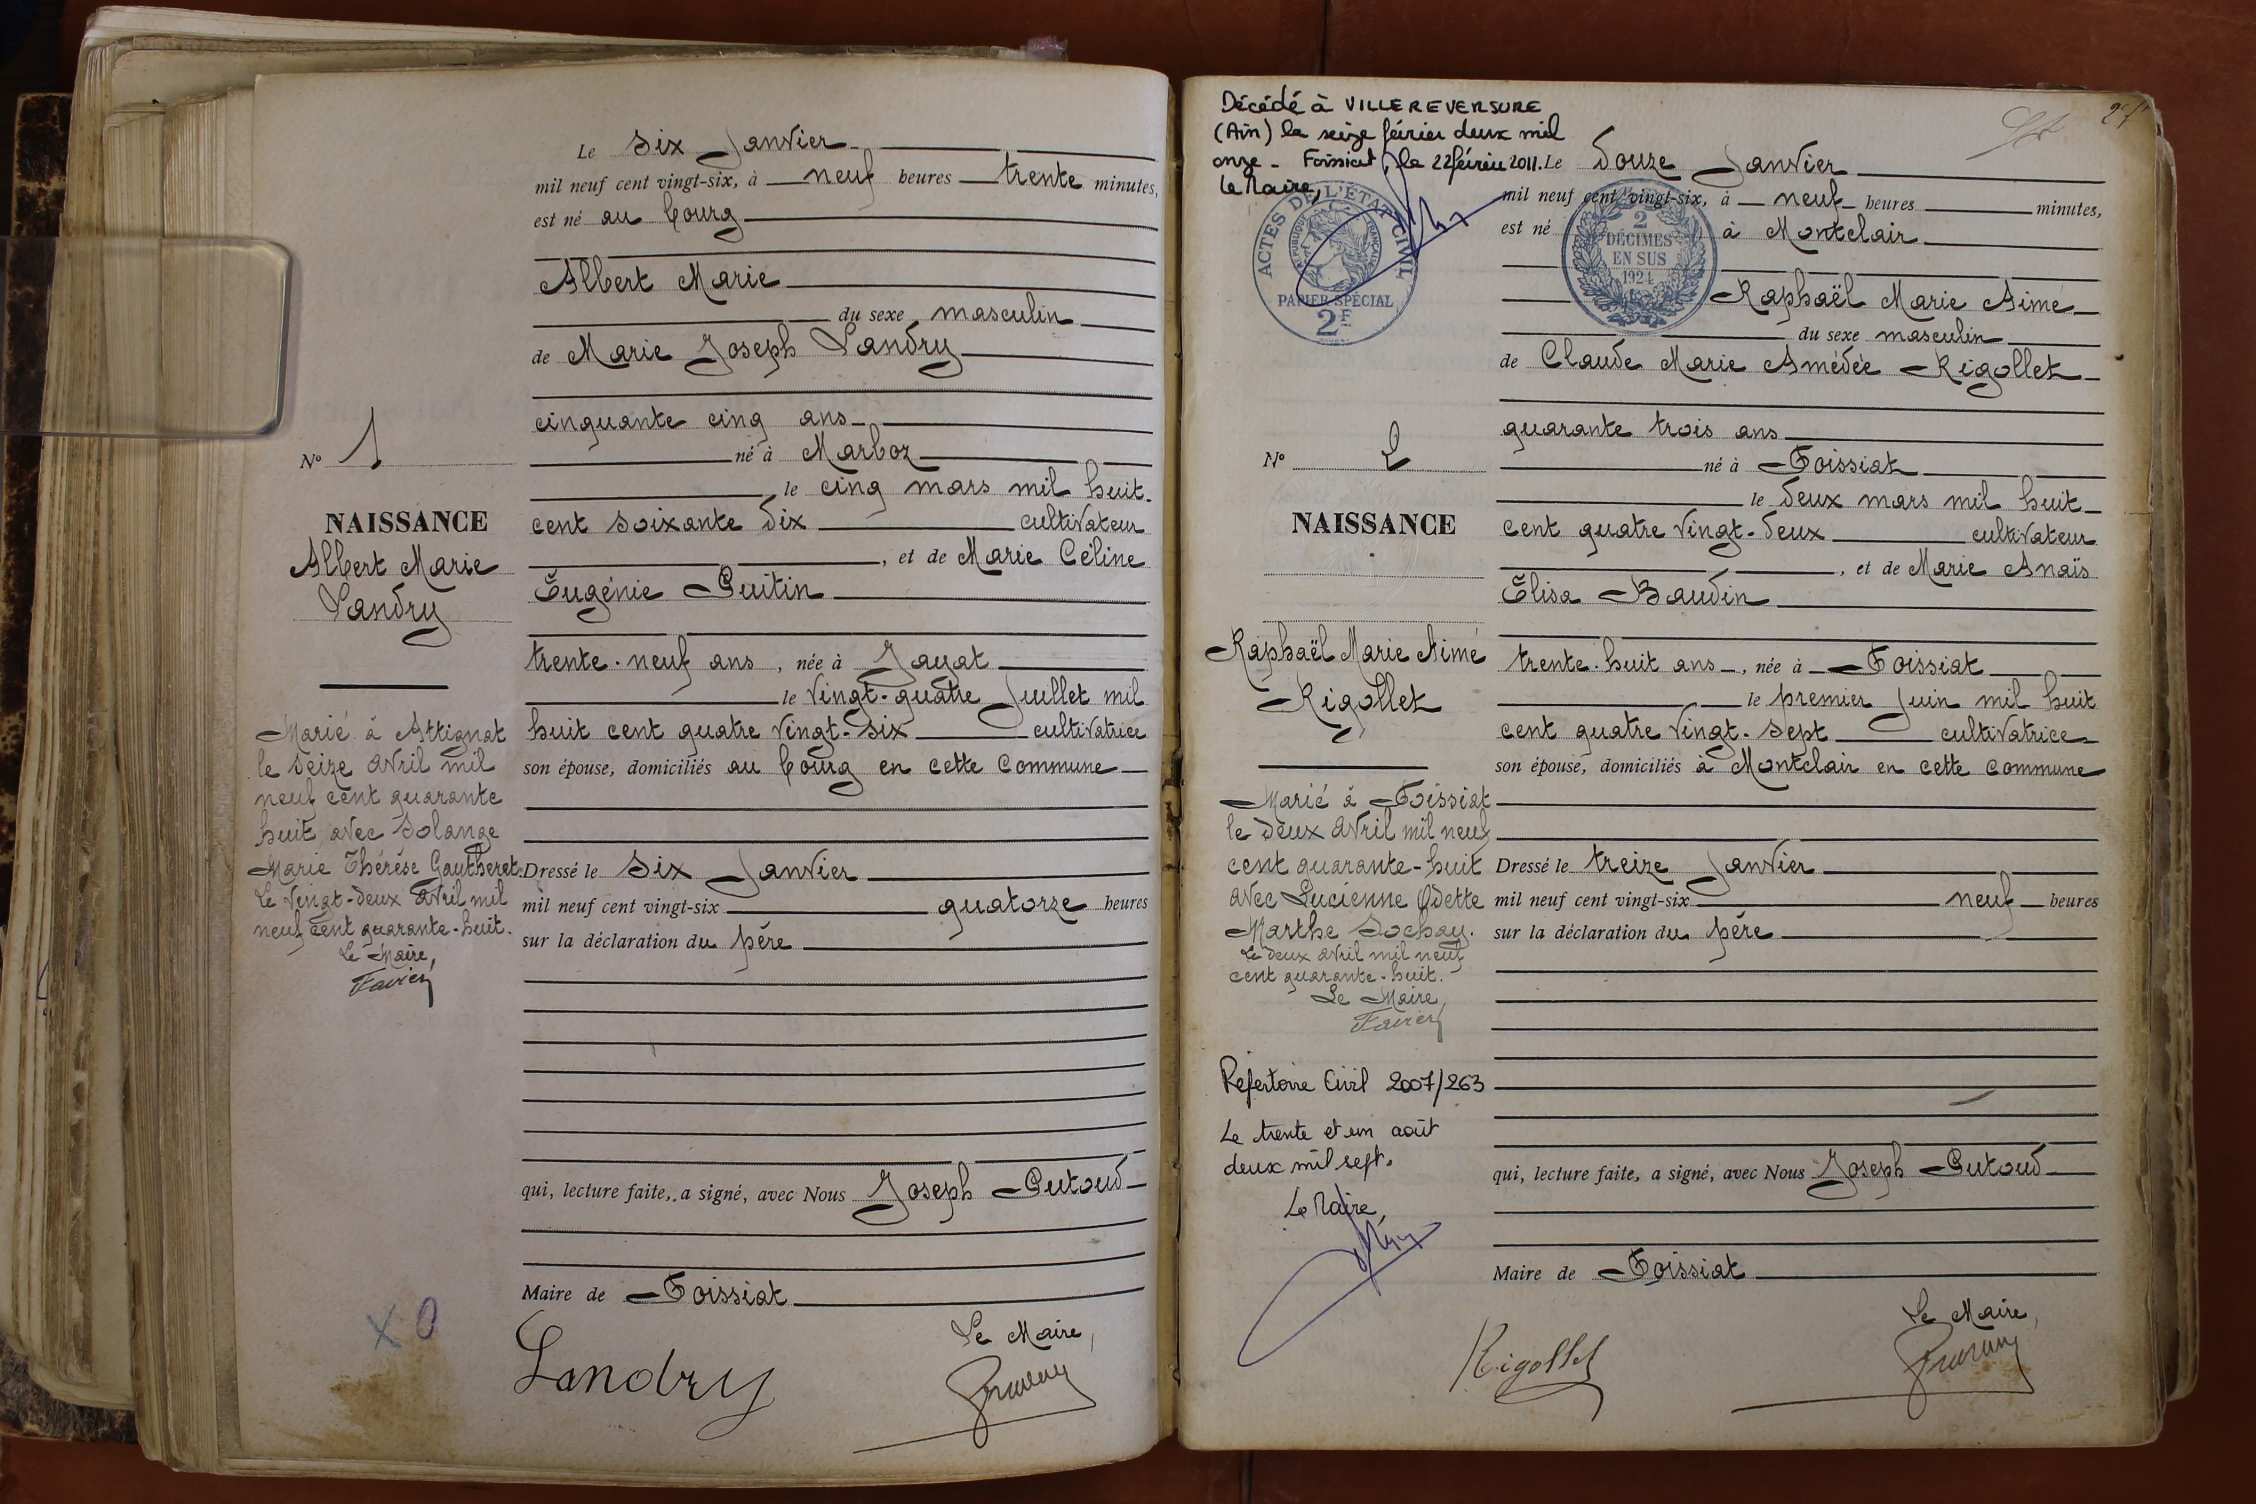 Le six Janvier
mil neuf cent vingt-six, à neuf heures trente minutes,
est né au bourg
Albert Marie
du sexe masculin
de Marie Joseph Landry
cinquante cinq ans
né à Marboz
le cinq mars mil huit-
cent soixante dix cultivateur
, et de Marie Céline
Eugénie Guitin
trente-neuf ans, née à Jayat
le vingt-quatre Juillet mil
huit cent quatre vingt-six cultivatrice
son épouse, domiciliés au bourg en cette Commune
Dressé le six Janvier
mil neuf cent vingt-six quatorze heures
sur la déclaration du père
qui, lecture faite, a signé, avec Nous Joseph
Maire de Foissiat
Le Maire,
Landry
N° 1
NAISSANCE
Albert Marie
Landry
Marié à Attignat
le seize avril mil
neuf cent quarante
huit avec Solange
Marie Thérèse Gautheret.
Le vingt-deux avril mil
neuf cent quarante-huit.
Le Maire,
Favier
X O
Décédé à VILLEREVERSURE
(Ain) le seize février deux mil
onze - Foissiat, le 22 février 2011.
Le Maire,
ACTES DE L'ETAT CIVIL
REPUBLIQUE FRANÇAISE
PAPIER SPÉCIAL
2F
2
DÉCIMES
EN SUS
1924
Le douze Janvier
mil neuf cent vingt-six, à neuf heures minutes,
est né à Montclair
Raphaël Marie Aimé
du sexe masculin
de Claude Marie Amédée Rigollet
quarante trois ans
né à Foissiat
le deux mars mil huit
cent quatre vingt-deux cultivateur
, et de Marie Anaïs
Elisa Baudin
trente-huit ans, née à Foissiat
le premier Juin mil huit
cent quatre vingt-sept cultivatrice
son épouse, domiciliés à Montclair en cette commune
Dressé le treize Janvier
mil neuf cent vingt-six neuf heures
sur la déclaration du père
qui, lecture faite, a signé, avec Nous Joseph
Maire de Foissiat
Le Maire,
Rigollet
N° 2
NAISSANCE
Raphaël Marie Aimé
Rigollet
Marié à Foissiat
le deux avril mil neuf
cent quarante-huit
avec Lucienne Odette
Marthe Sochay.
Le deux avril mil neuf
cent quarante-huit.
Le Maire,
Favier
Répertoire Civil 2007/263
Le trente et un août
deux mil sept.
Le Maire,